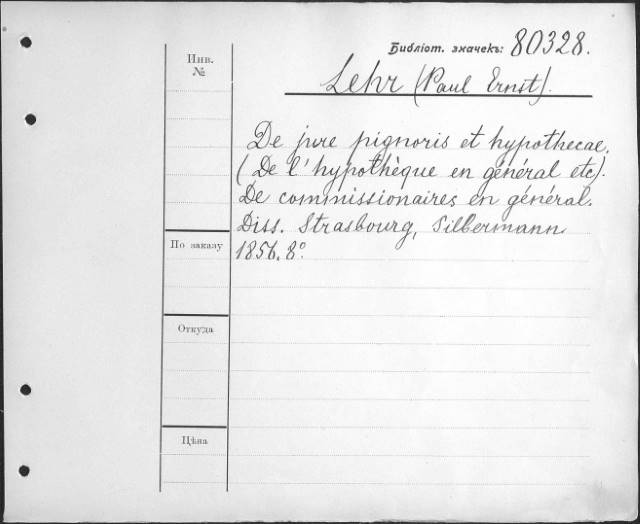 Библіот. значекъ: 80328.
Инв. №
Lehr (Paul Ernst).
De jure pignoris et hypothecae.
(De l'hypothèque en général etc).
De commissionaires en général.
Diss. Strasbourg, Silbermann
1856. 8°.
По заказу
Откуда
Цѣна